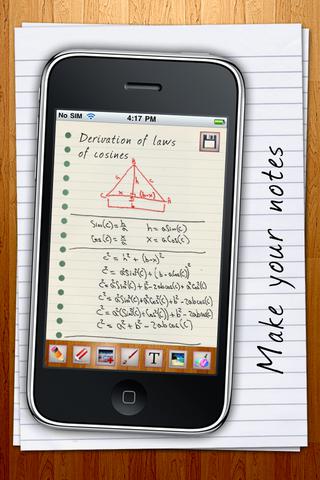 No SIM 4:17 PM
Derivation of laws
of cosines
a h c
C x (b-x) A
b
Sin(C) = h/a h = a Sin(C)
Cos(C) = x/a x = a Cos(C)
c² = h² + (b-x)²
c² = a² Sin(C) + (b - a Cos(C))²
c² = a² Sin²(C) + b² - 2ab cos(C) + a² cos²(C)
c² = a² Sin²(C) + a² Cos²(C) + b² - 2ab cos(C)
c² = a² (Sin²(C) + Cos²(C)) + b² - 2ab cos(C)
c² = a² + b² - 2ab cos(C)
T
Make your notes